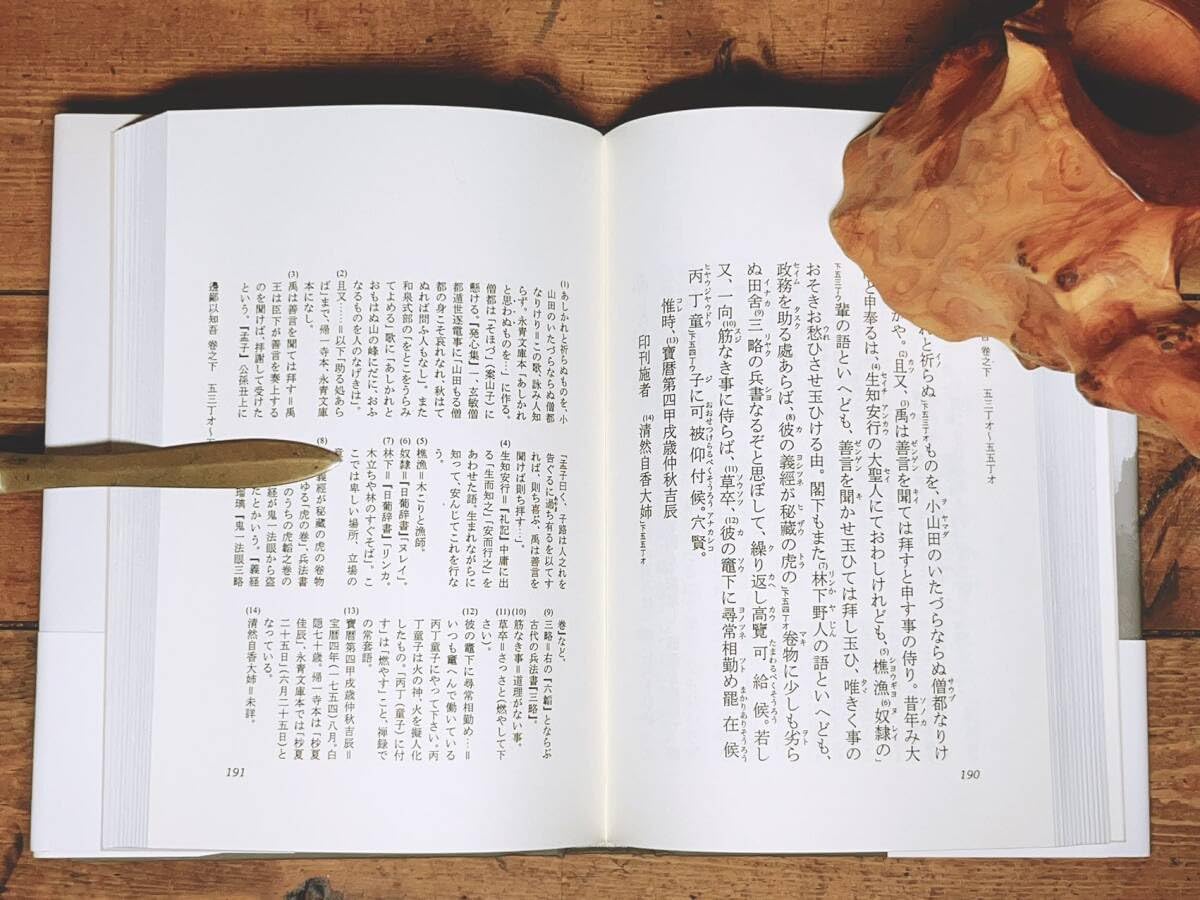 巻之下 五三丁オ〜五五丁オ
れと祈らぬ[下五三丁オ]ものを、小山田のいたづらならぬ僧都なりけ
かや。(2)且又、(3)禹は善言を聞ては拝すと申す事の侍り。昔年み大
と申奉るは、(4)生知安行の大聖人にておわしけれども、(5)樵漁(6)奴隷の
[下五三丁ウ]輩の語といへども、善言を聞かせ玉ひては拝し玉ひ、唯きく事の
おそきお愁ひさせ玉ひける由。閣下もまた(7)林下野人の語といへども、
政務を助る處あらば、(8)彼の義經が秘藏の虎の[下五四丁オ]卷物に少しも劣ら
ぬ田舍(9)三略の兵書なるぞと思ぼして、繰り返し高覽可給候。若し
又、一向(10)筋なき事に侍らば、(11)草卒、(12)彼の竈下に尋常相勤め罷在候
丙丁童[下五四丁ウ]子に可被仰付候。穴賢。
惟時、(13)寶曆第四甲戌歳仲秋吉辰
印刊施者 (14)清然自香大姉[下五五丁オ]
190
(1)あしかれと祈らぬものを、小
山田のいたづらならぬ僧都
なりけり＝この歌、詠み人知
らず。永青文庫本「あしかれ
と思わぬものを…」に作る。
僧都は「そほづ」(案山子)に
懸ける。『発心集』一、玄敏僧
都遁世逐電事に「山田もる僧
都の身こそ哀れなれ、秋はて
ぬれば問ふ人もなし」。また
和泉式部の「をとこをうらみ
てよめる」歌に「あしかれと
おもはぬ山の峰にだに、おふ
なるものを人のなげきは」。
(2)且又……＝以下「助る処あら
ば」まで、帰一寺本、永青文庫
本になし。
(3)禹は善言を聞ては拝す＝禹
王は臣下が善言を奏上する
のを聞けば、拝謝して受けた
という。『孟子』公孫丑上に
「孟子曰く、子路は人之れを
告ぐるに過ち有るを以てす
れば、則ち喜ぶ、禹は善言を
聞けば則ち拝す…」。
(4)生知安行＝『礼記』中庸に出
る「生而知之」「安而行之」を
あわせた語。生まれながらに
知って、安んじてこれを行な
う。
(5)樵漁＝木こりと漁師。
(6)奴隷＝『日葡辞書』「ヌレイ」。
(7)林下＝『日葡辞書』「リンカ。
木立ちや林のすぐそば」。こ
こでは卑しい場所、立場の
(8)義經が秘藏の虎の卷物
ゆる「虎の巻」、兵法書
のうちの虎韜之巻の
経が鬼一法眼から盗
たとかいう。『義経
瑠璃『鬼一法眼三略
巻』など。
(9)三略＝右の『六韜』とならぶ
古代の兵法書『三略』。
(10)筋なき事＝道理がない事。
(11)草卒＝さっさと(燃やして下
さい)。
(12)彼の竈下に尋常相勤め…＝
いつも竈へんで働いている
丙丁童子にやって下さい。丙
丁童子は火の神、火を擬人化
したもの。「丙丁(童子)に付
す」は「燃やす」こと、禅録で
の常套語。
(13)寶曆第四甲戌歳仲秋吉辰＝
宝暦四年(一七五四)八月。白
隠七十歳。帰一寺本は「杪夏
佳辰」、永青文庫本では「杪夏
二十五日」(六月二十五日)と
なっている。
(14)清然自香大姉＝未詳。
邊鄙以知吾 卷之下 五三丁オ〜五
191